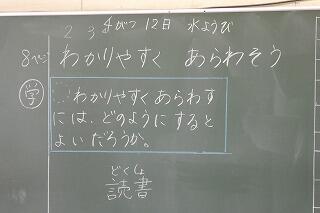 2 3 4がつ 12日 水ようび
8ページ わかりやすく あらわそう
学 わかりやすくあらわす
には、どのようにすると
よいだろうか。
どくしょ
読書